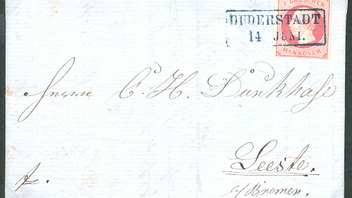 1 GROSCHEN
DUDERSTADT
14 JUNI.
HANNOVER
Herrn C. H. Dünkhase
Leeste.
f.
b/Bremen.